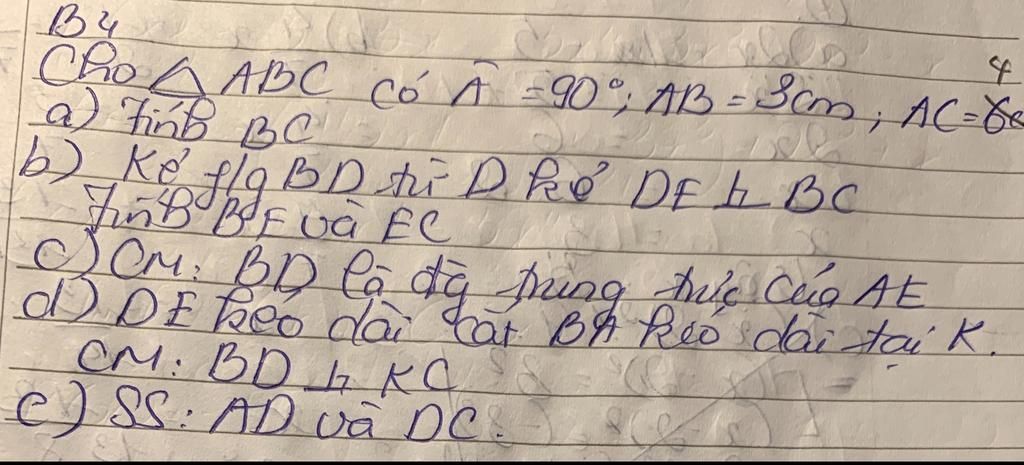 B4
Cho △ ABC có Â = 90°; AB = 3cm; AC = 4
a) Tính BC
b) Kẻ f/g BD từ D kẻ DE ⊥ BC
Tính BE và EC
c) CM: BD là đg trung trực của AE
d) DE kéo dài cắt BA kéo dài tại K.
CM: BD ⊥ KC
e) SS: AD và DC.